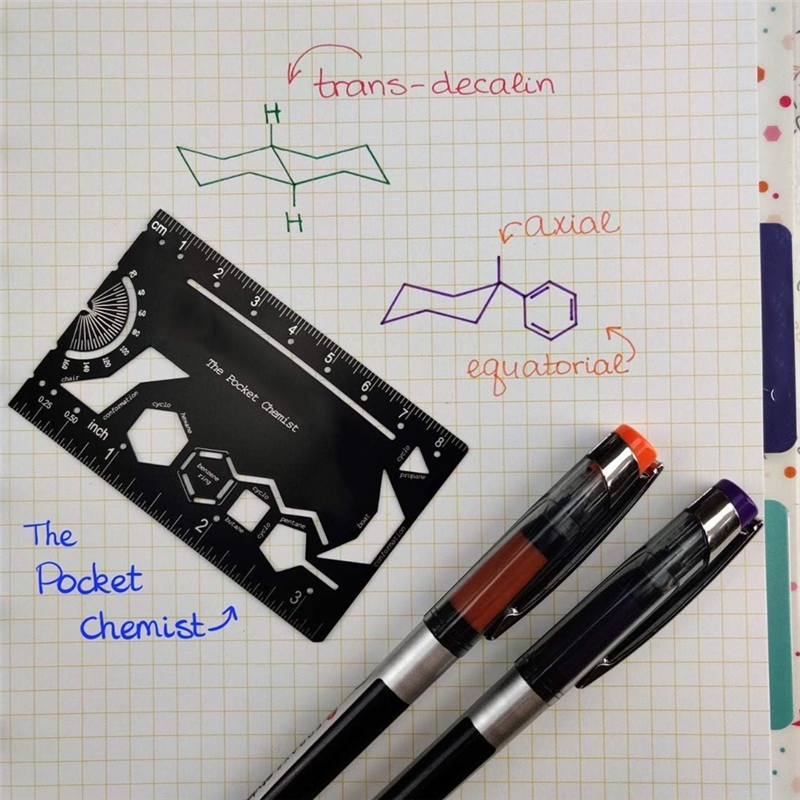 trans-decalin
H
H
axial
equatorial
cm 1 2 3 4 5 6 7 8
The Pocket Chemist
chair
conformation
cyclo
hexane
benzene
ring
cyclo
butane
cyclo
pentane
cyclo
propane
boat
conformation
0.25 0.50 inch 1 2 3
The
Pocket
Chemist